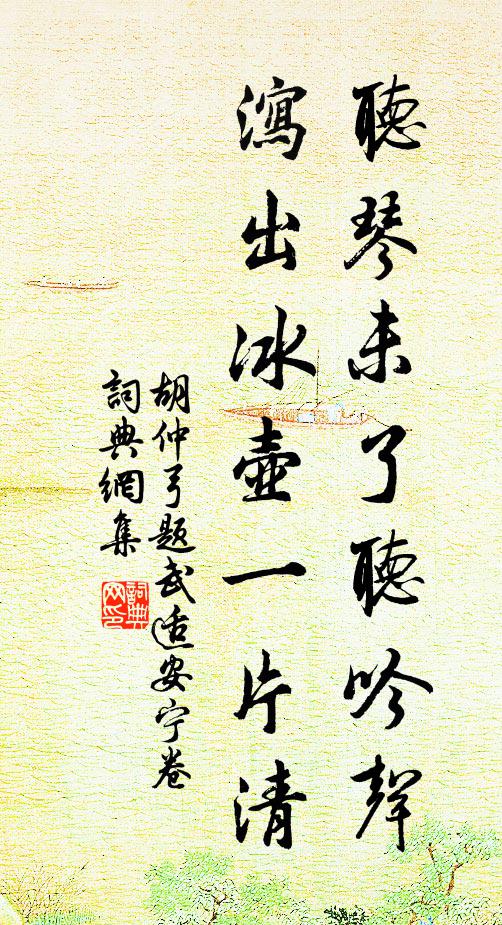 聽琴未了聽吟聲
瀉出冰壺一片清
胡仲弓題武适安宁卷
詞典網集
詞典網印